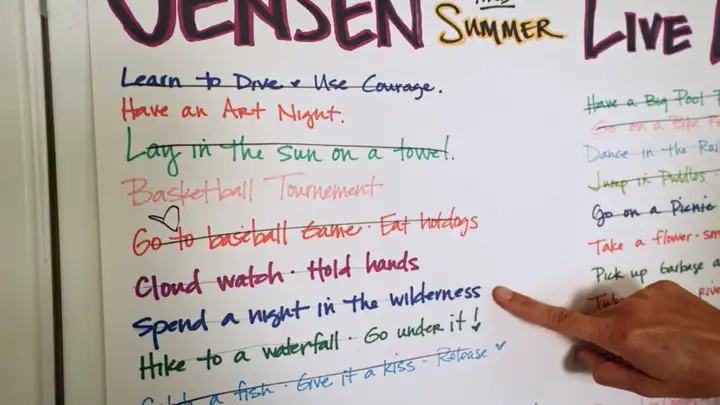 JENSEN
SUMMER
LIVE
Learn to Drive & Use Courage.
Have an Art Night.
Lay in the sun on a towel.
Basketball Tournement
Go to baseball Game · Eat hotdogs
Cloud watch · Hold hands
Spend a night in the wilderness
Hike to a waterfall · Go under it!
a fish · Give it a kiss - Release
Have a Big Pool
Go on a Bike
Dance in the
Jump in Puddles ·
Go on a Picnic
Take a flower ·
Pick up Garbage